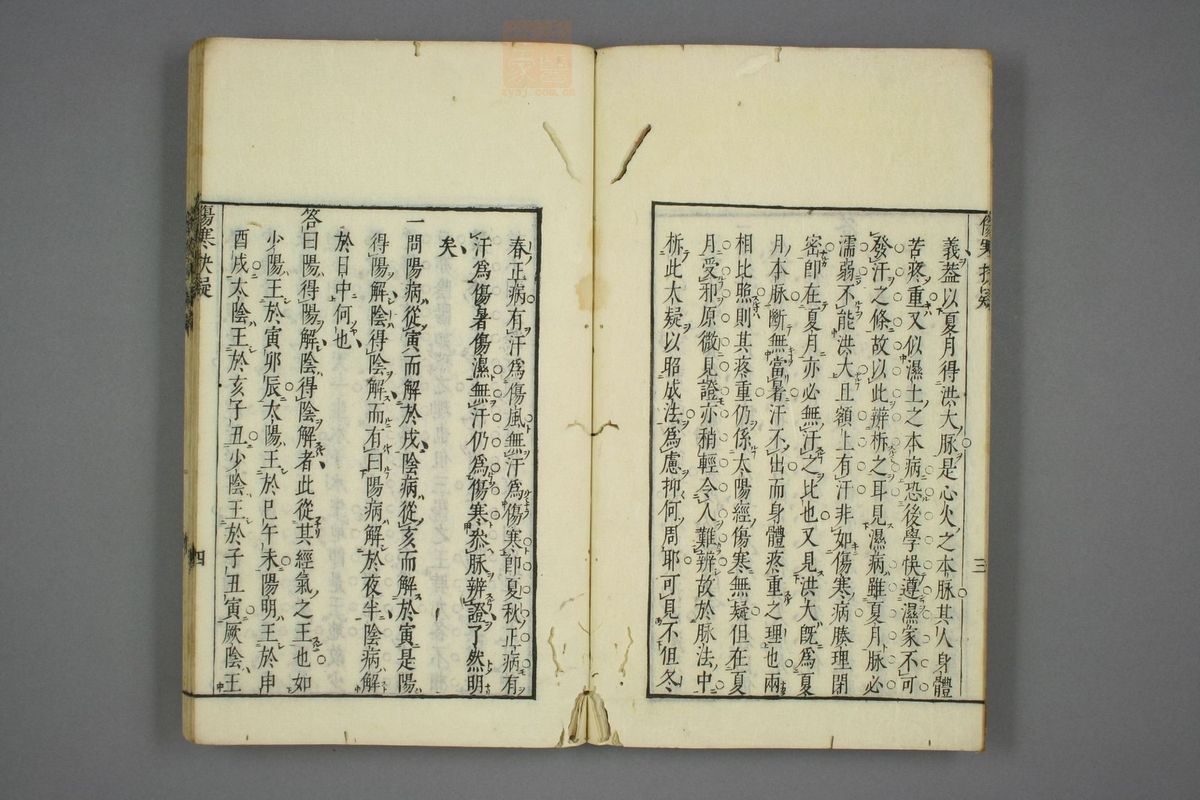 義蓋以夏月得洪大脉是心火之本脉其人身體
苦疼重又似濕土之本病恐後學悞遵濕家不可
發汗之條故以此辨柝之耳見濕病雖夏月脉必
濡弱不能洪大且額上有汗非如傷寒病腠理閉
密即在夏月亦必無汗之比也又見洪大既爲夏
月本脉斷無當暑汗不出而身體疼重之理也兩
相比照則其疼重仍係太陽經傷寒無疑但在夏
月受邪原微見證亦稍輕令人難辨故於脉法中
柝此太疑以昭成法爲慮抑何周耶可見不但冬
三
春正病有汗爲傷風無汗爲傷寒即夏秋正病有
汗爲傷暑傷濕無汗仍爲傷寒叅脉辨證了然明
矣
一問陽病從寅而解於戌陰病從亥而解於寅是陽
得陽解陰得陰解而有曰陽病解於夜半陰病解
於日中何也
答曰陽得陽解陰得陰解者此從其經氣之王也如
少陽王於寅卯辰太陽王於巳午未陽明王於申
酉戌太陰王於亥子丑少陰王於子丑寅厥陰王
傷寒抉疑
四